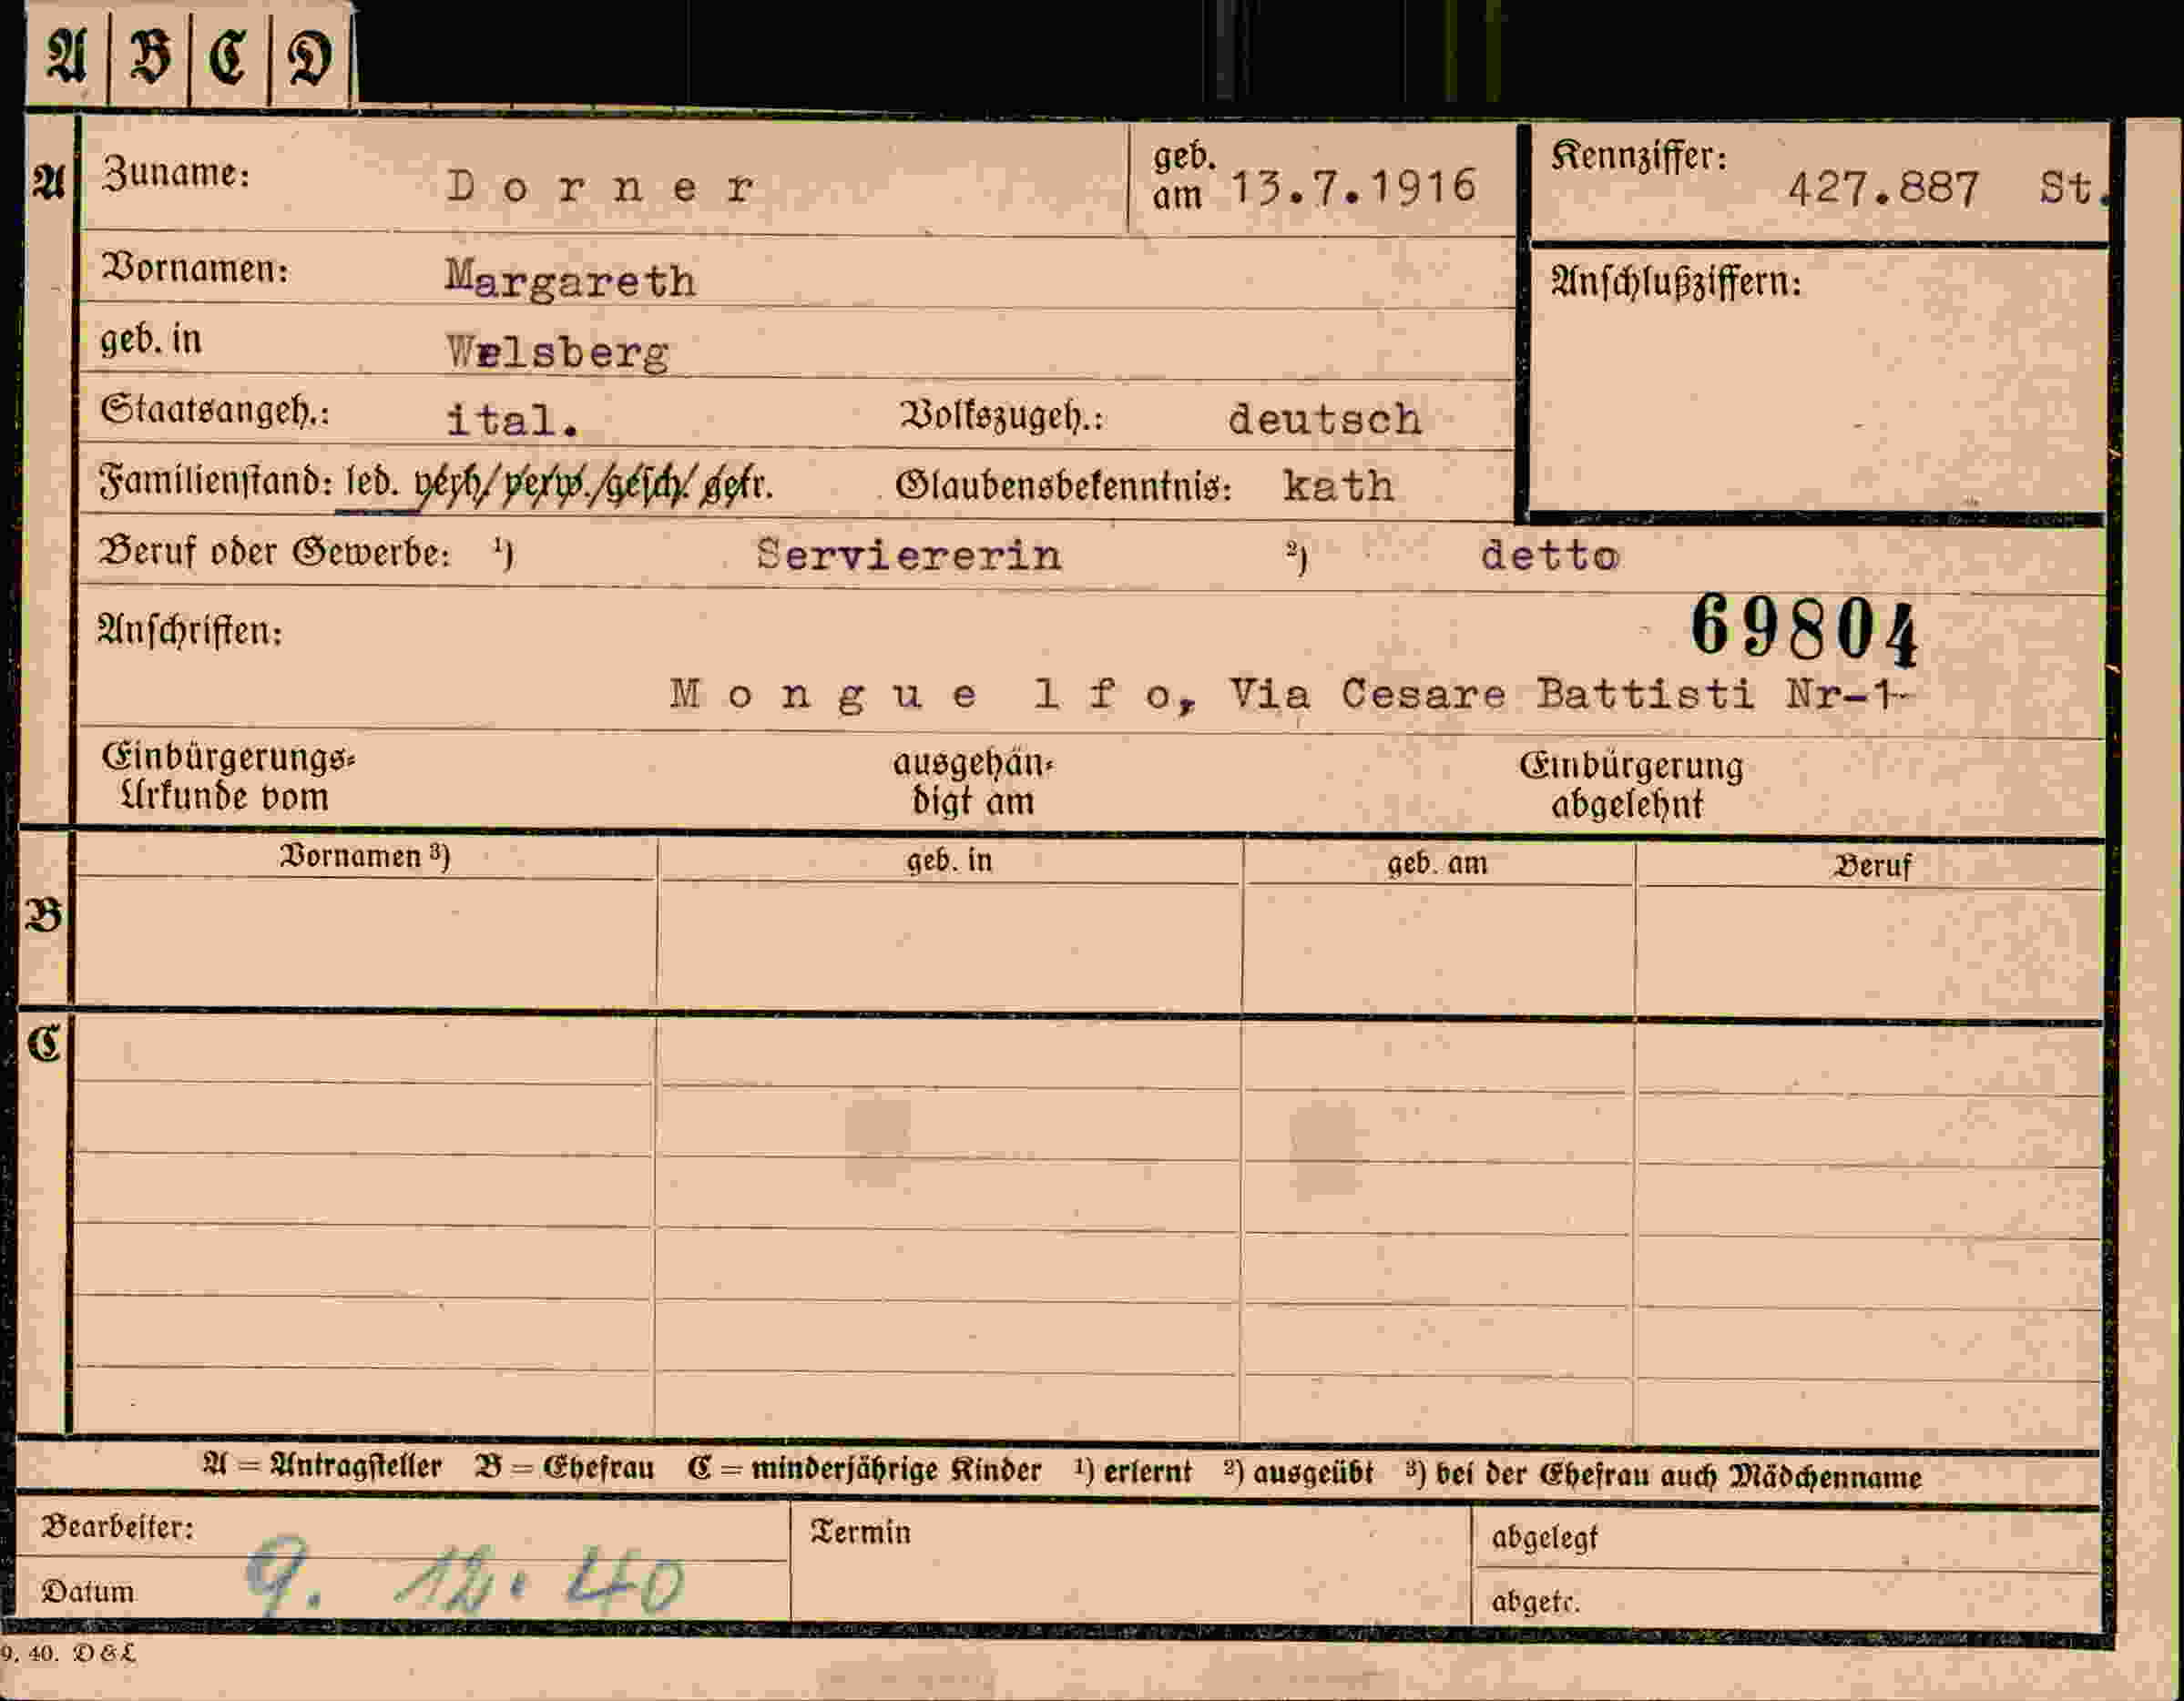 A B C D
A Zuname: Dorner geb. am 13.7.1916 Kennziffer: 427.887 St.
Vornamen: Margareth Anschlußziffern:
geb. in Welsberg
Staatsangeh.: ital. Volkszugeh.: deutsch
Familienstand: led. verh/verw./gesch/ getr. Glaubensbekenntnis: kath
Beruf oder Gewerbe: ¹) Serviererin ²) detto
69804
Anschriften:
Mongue lfo, Via Cesare Battisti Nr-1-
Einbürgerungs- ausgehän- Einbürgerung
Urkunde vom digt am abgelehnt
Vornamen ³) geb. in geb. am Beruf
B
C
A = Antragsteller B = Ehefrau C = minderjährige Kinder ¹) erlernt ²) ausgeübt ³) bei der Ehefrau auch Mädchenname
Bearbeiter: Termin abgelegt
Datum 9. 12. 40 abgetr.
9. 40. D & L